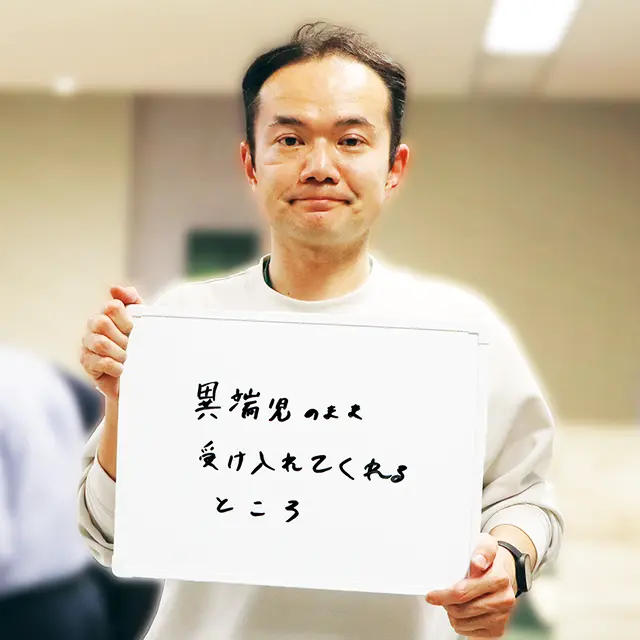 異端児のまま
受け入れてくれる
ところ